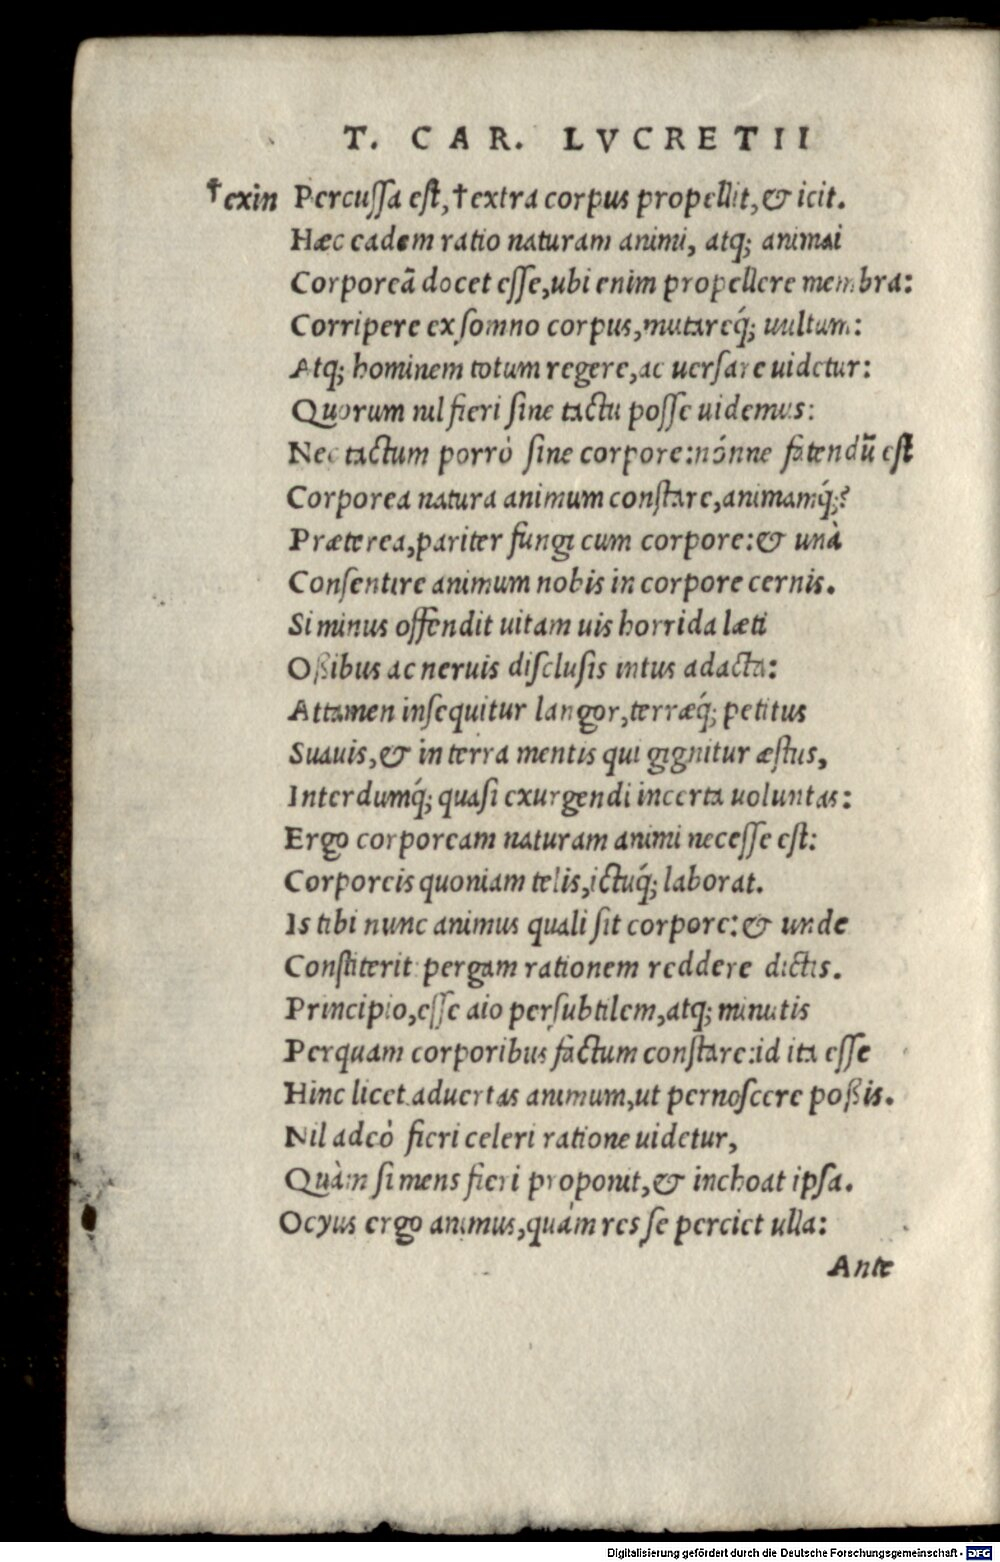 T. CAR. LVCRETII
†exin Percussa est,†extra corpus propellit,& icit.
Hæc eadem ratio naturam animi, atq; animai
Corporeā docet esse,ubi enim propellere membra:
Corripere ex somno corpus,mutareq́; uultum:
Atq; hominem totum regere,ac uersare uidetur:
Quorum nil fieri sine tactu posse uidemus:
Nec tactum porrò sine corpore:nónne fatendū est
Corporea natura animum constare,animamq́;?
Præterea,pariter fungi cum corpore:& unà
Consentire animum nobis in corpore cernis.
Si minus offendit uitam uis horrida læti
Oßibus ac neruis disclusis intus adacta:
Attamen insequitur langor,terræq́; petitus
Suauis,& in terra mentis qui gignitur æstus,
Interdumq́; quasi exurgendi incerta uoluntas:
Ergo corpoream naturam animi necesse est:
Corporeis quoniam telis,ictuq́; laborat.
Is tibi nunc animus quali sit corpore:& unde
Constiterit: pergam rationem reddere dictis.
Principio,esse aio persubtilem,atq; minutis
Perquam corporibus factum constare:id ita esse
Hinc licet aduertas animum,ut pernoscere poßis.
Nil adeò fieri celeri ratione uidetur,
Quàm si mens fieri proponit,& inchoat ipsa.
Ocyus ergo animus,quàm res se perciet ulla:
Ante
Digitalisierung gefördert durch die Deutsche Forschungsgemeinschaft - DFG